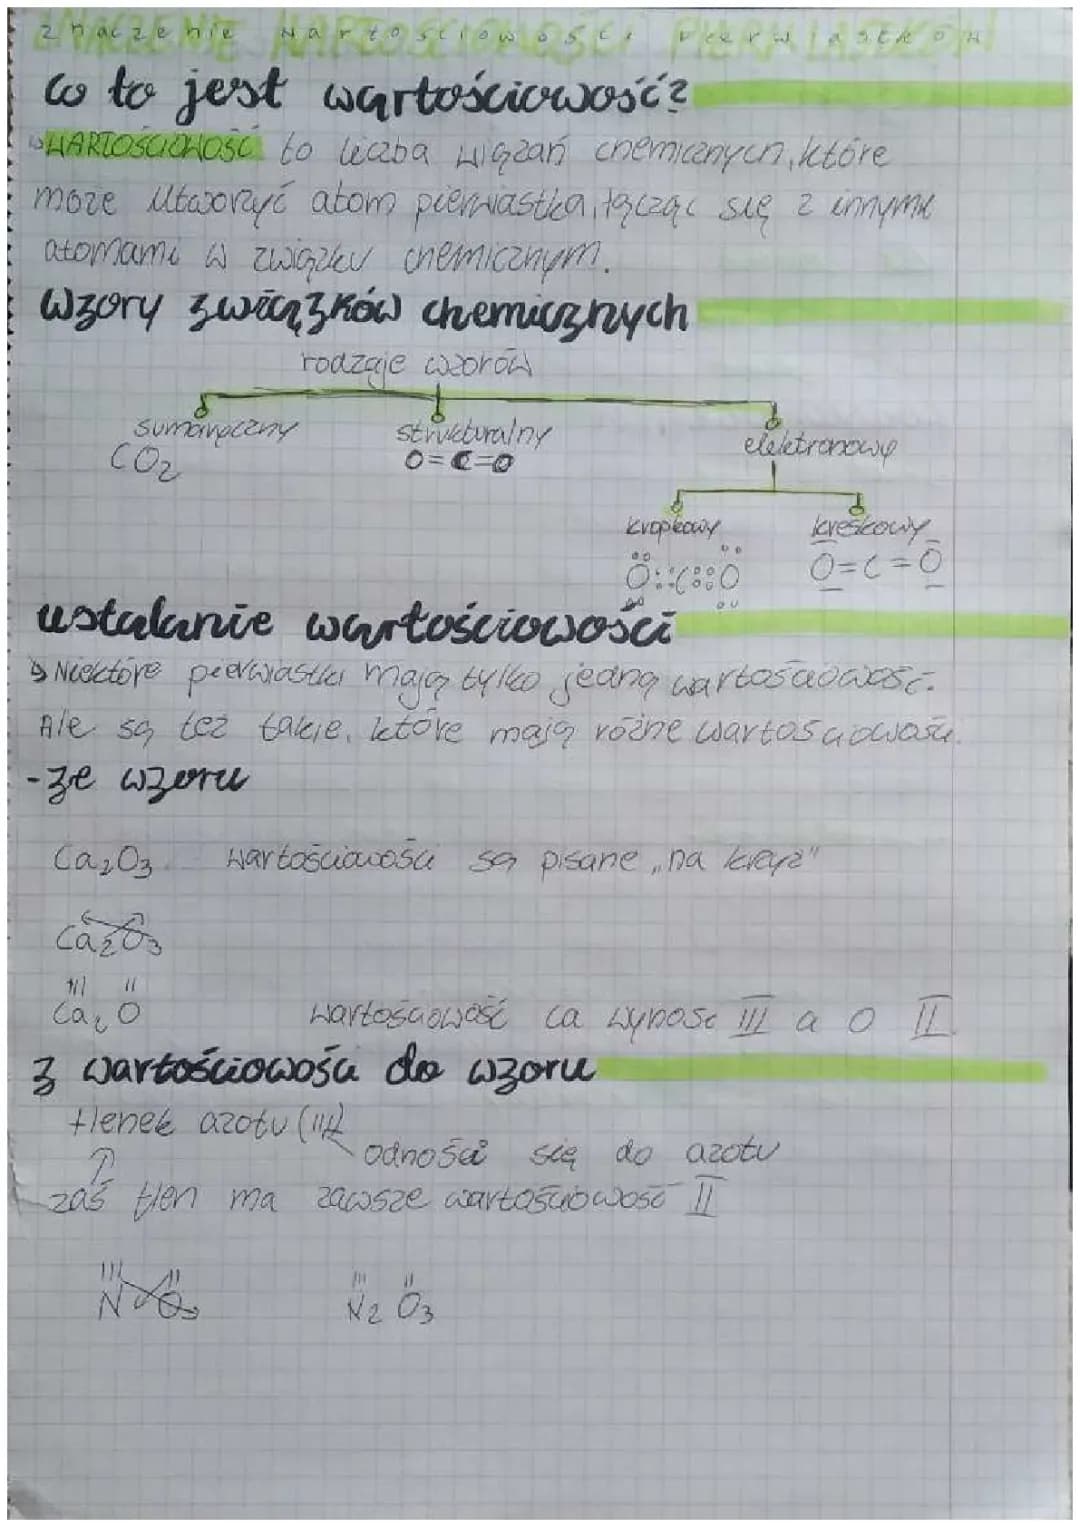 znaczenie wartościowości pierwiastków
co to jest wartościowość?
WARTOŚCIOWOŚĆ to liczba wiązań chemicznych, które
może utworzyć atom pierwiastka, łącząc się z innymi
atomami w związku chemicznym.
wzory związków chemicznych
rodzaje wzorów
sumaryczny strukturalny elektronowy
CO₂ O=C=O
kropkowy kreskowy
O::C::O O=C=O
ustalanie wartościowości
Niektóre pierwiastki mają tylko jedną wartościowość.
Ale są też takie, które mają różne wartościowości.
-ze wzoru
Ca₂O₃ wartościowości są pisane „na krzyż"
Ca₂O₃
III II
Ca₂ O wartościowość Ca wynosi III a O II
z wartościowości do wzoru
tlenek azotu (III)
odnosi się do azotu
zaś tlen ma zawsze wartościowość II
III II III II
N O₃ N₂ O₃